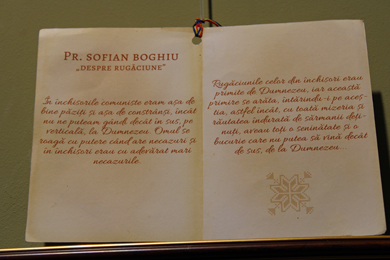 PR. SOFIAN BOGHIU
„DESPRE RUGĂCIUNE”
În închisorile comuniste eram așa de
bine păziți și așa de constrânși, încât
nu ne puteam gândi decât în sus, pe
verticală, la Dumnezeu. Omul se
roagă cu putere când are necazuri și
în închisori erau cu adevărat mari
necazurile.
Rugăciunile celor din închisori erau
primite de Dumnezeu, iar această
primire se arăta, întărindu-i pe aceș-
tia, astfel încât, cu toată mizeria și
răutatea îndurată de sărmanii deți-
nuți, aveau toți o seninătate și o
bucurie care nu putea să vină decât
de sus, de la Dumnezeu...